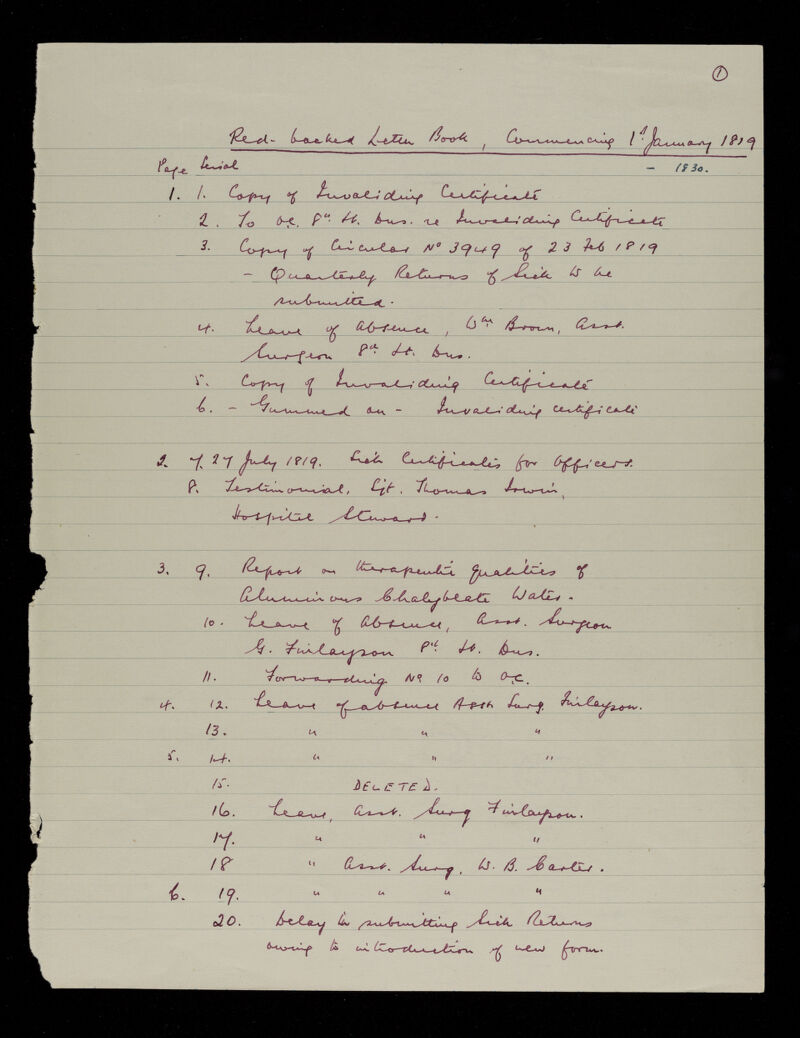 1
Red-backed Letter Book, Commencing 1st January 1819
Page Serial – 1830.
1. 1. Copy of Invaliding Certificate
2. To O.C. 8th Lt. Dns. re Invaliding Certificate
3. Copy of Circular No 3949 of 23 Feb 1819
– Quarterly Returns of Sick to be
submitted.
4. Leave of absence, Wm Brown, Asst.
Surgeon 8th Lt. Dns.
5. Copy of Invaliding Certificate
6. – Gummed on – Invaliding certificate
2. 7. 27 July 1819. Sick Certificates for Officers.
8. Testimonial, Sjt. Thomas Irwin,
Hospital Steward.
3. 9. Report on therapeutic qualities of
Aluminous Chalybeate Water.
10. Leave of Absence, Asst. Surgeon
G. Finlayson 8th Lt. Dns.
11. Forwarding No 10 to O.C.
4. 12. Leave of absence Asst Surg. Finlayson.
13. " " "
5. 14. " " "
15. DELETED.
16. Leave, Asst. Surg Finlayson.
17. " " "
18 " Asst. Surg. W. B. Carter.
6. 19. " " " "
20. Delay in submitting Sick Returns
owing to introduction of new form.